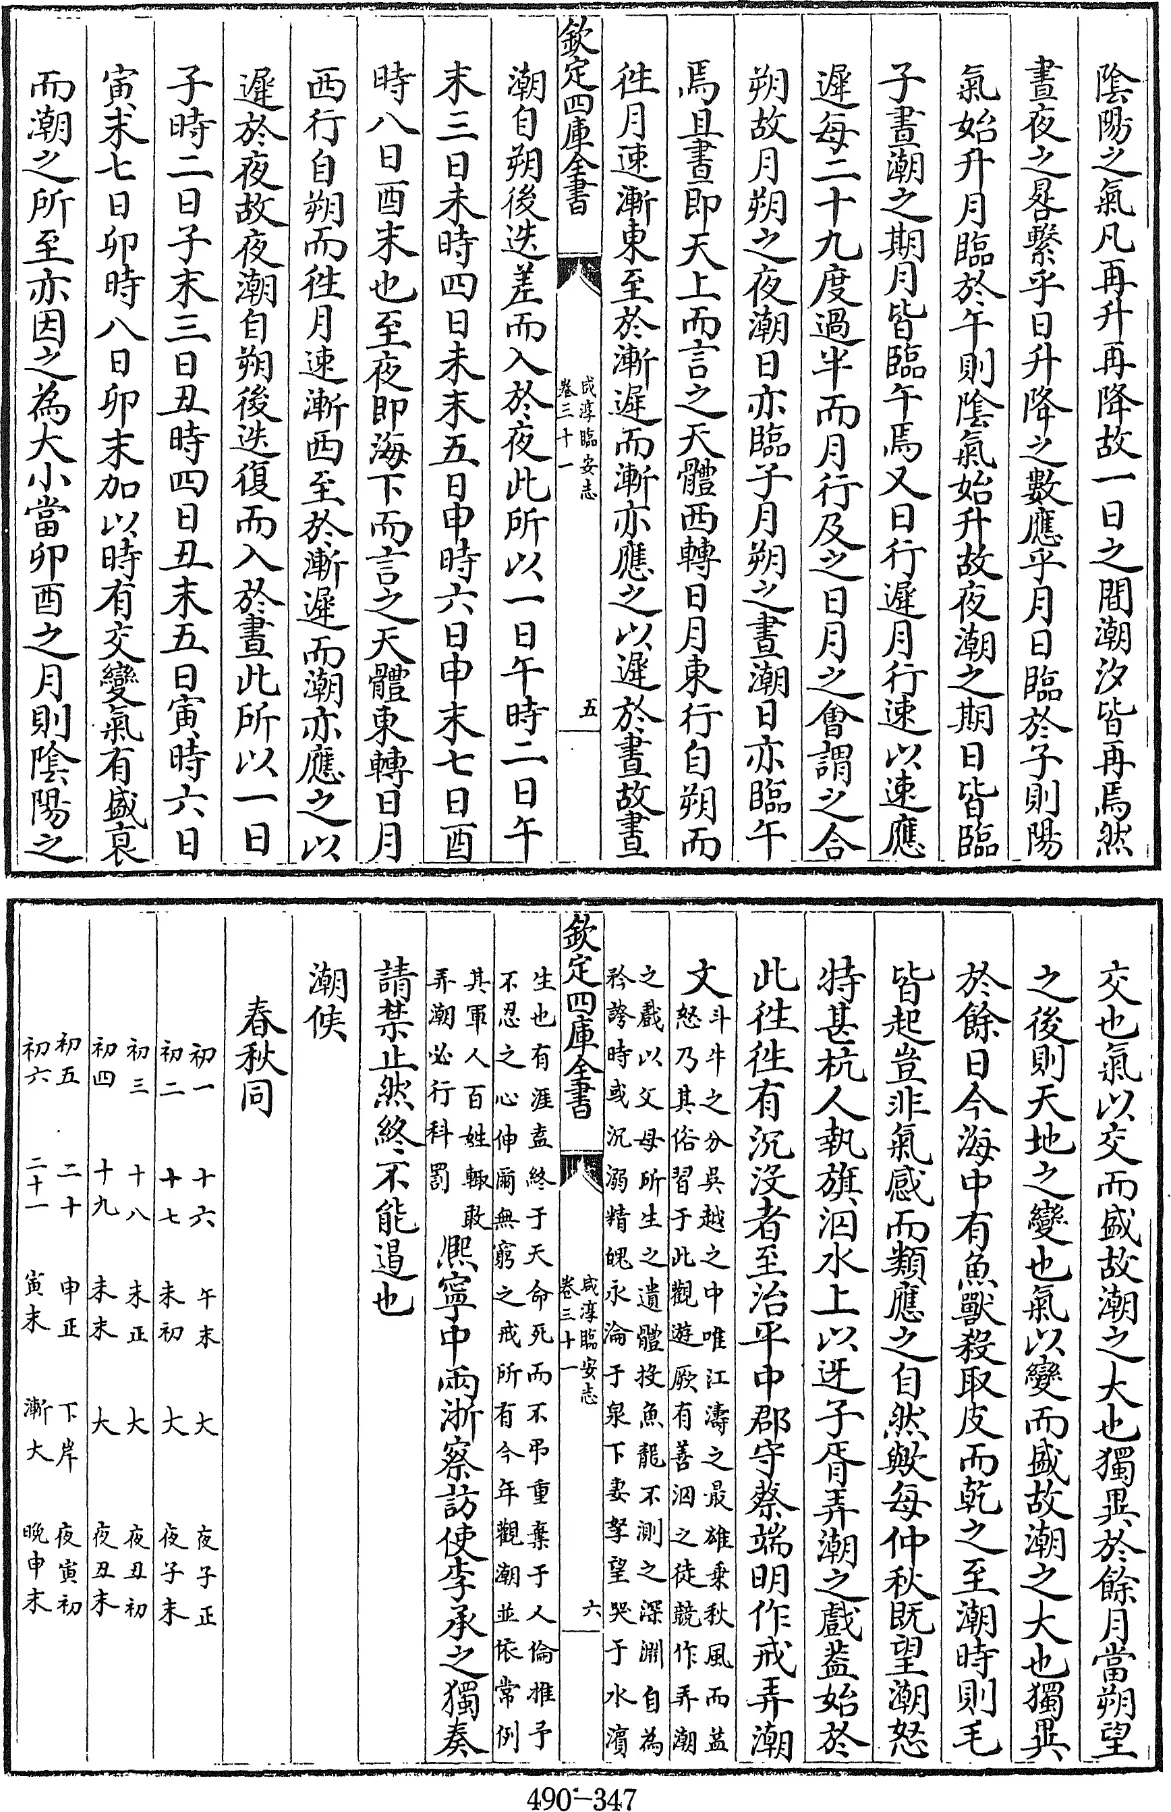 陰陽之氣凡再升再降故一日之間潮汐皆再焉然
晝夜之晷繫乎日升降之數應乎月日臨於子則陽
氣始升月臨於午則陰氣始升故夜潮之期日皆臨
子晝潮之期月皆臨午焉又日行遲月行速以速應
遲每二十九度過半而月行及之日月之會謂之合
朔故月朔之夜潮日亦臨子月朔之晝潮日亦臨午
焉且晝即天上而言之天體西轉日月東行自朔而
徃月速漸東至於漸遲而漸亦應之以遲於晝故晝
欽定四庫全書
咸淳臨安志
卷三十一
五
潮自朔後迭差而入於夜此所以一日午時二日午
末三日未時四日未末五日申時六日申末七日酉
時八日酉末也至夜即海下而言之天體東轉日月
西行自朔而徃月速漸西至於漸遲而潮亦應之以
遲於夜故夜潮自朔後迭復而入於晝此所以一日
子時二日子末三日丑時四日丑末五日寅時六日
寅末七日卯時八日卯末加以時有交變氣有盛衰
而潮之所至亦因之為大小當卯酉之月則陰陽之
交也氣以交而盛故潮之大也獨異於餘月當朔望
之後則天地之變也氣以變而盛故潮之大也獨異
於餘日今海中有魚獸殺取皮而乾之至潮時則毛
皆起豈非氣感而類應之自然歟每仲秋既望潮怒
特甚杭人執旗泅水上以迓子胥弄潮之戲葢始於
此徃徃有沉没者至治平中郡守蔡端明作戒弄潮
文
斗牛之分吳越之中唯江濤之最雄乗秋風而益
怒乃其俗習于此觀遊厥有善泅之徒競作弄潮
之戲以父母所生之遺體投魚龍不測之深淵自為
矜誇時或沉溺精魄永淪于泉下妻孥望哭于水濱
欽定四庫全書
咸淳臨安志
卷三十一
六
生也有涯盍終于天命死而不弔重棄于人倫推予
不忍之心伸爾無窮之戒所有今年觀潮並依常例
其軍人百姓輙敢
弄潮必行科罰
熙寧中兩浙察訪使李承之獨奏
請禁止然終不能遏也
潮候
春秋同
初一 十六 午末 大 夜子正
初二 十七 未初 大 夜子末
初三 十八 未正 大 夜丑初
初四 十九 未末 大 夜丑末
初五 二十 申正 下岸 夜寅初
初六 二十一 寅末 漸大 晚申末
490-347